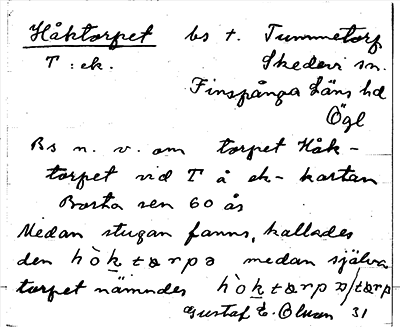 Håktorpet bs t. Tummetorp
T : ek. Skedevi sn.
Finspånga läns hd
Ögl
Bs n. v. om torpet Håk-
torpet vid T å ek-kartan
Borta sen 60 år
Medan stugan fanns, kallades
den hò̀ḵtɷrpə medan själva
torpet nämndes hò̀ḵtɷrpə/tɷrp
Gustaf E. Olsson 31